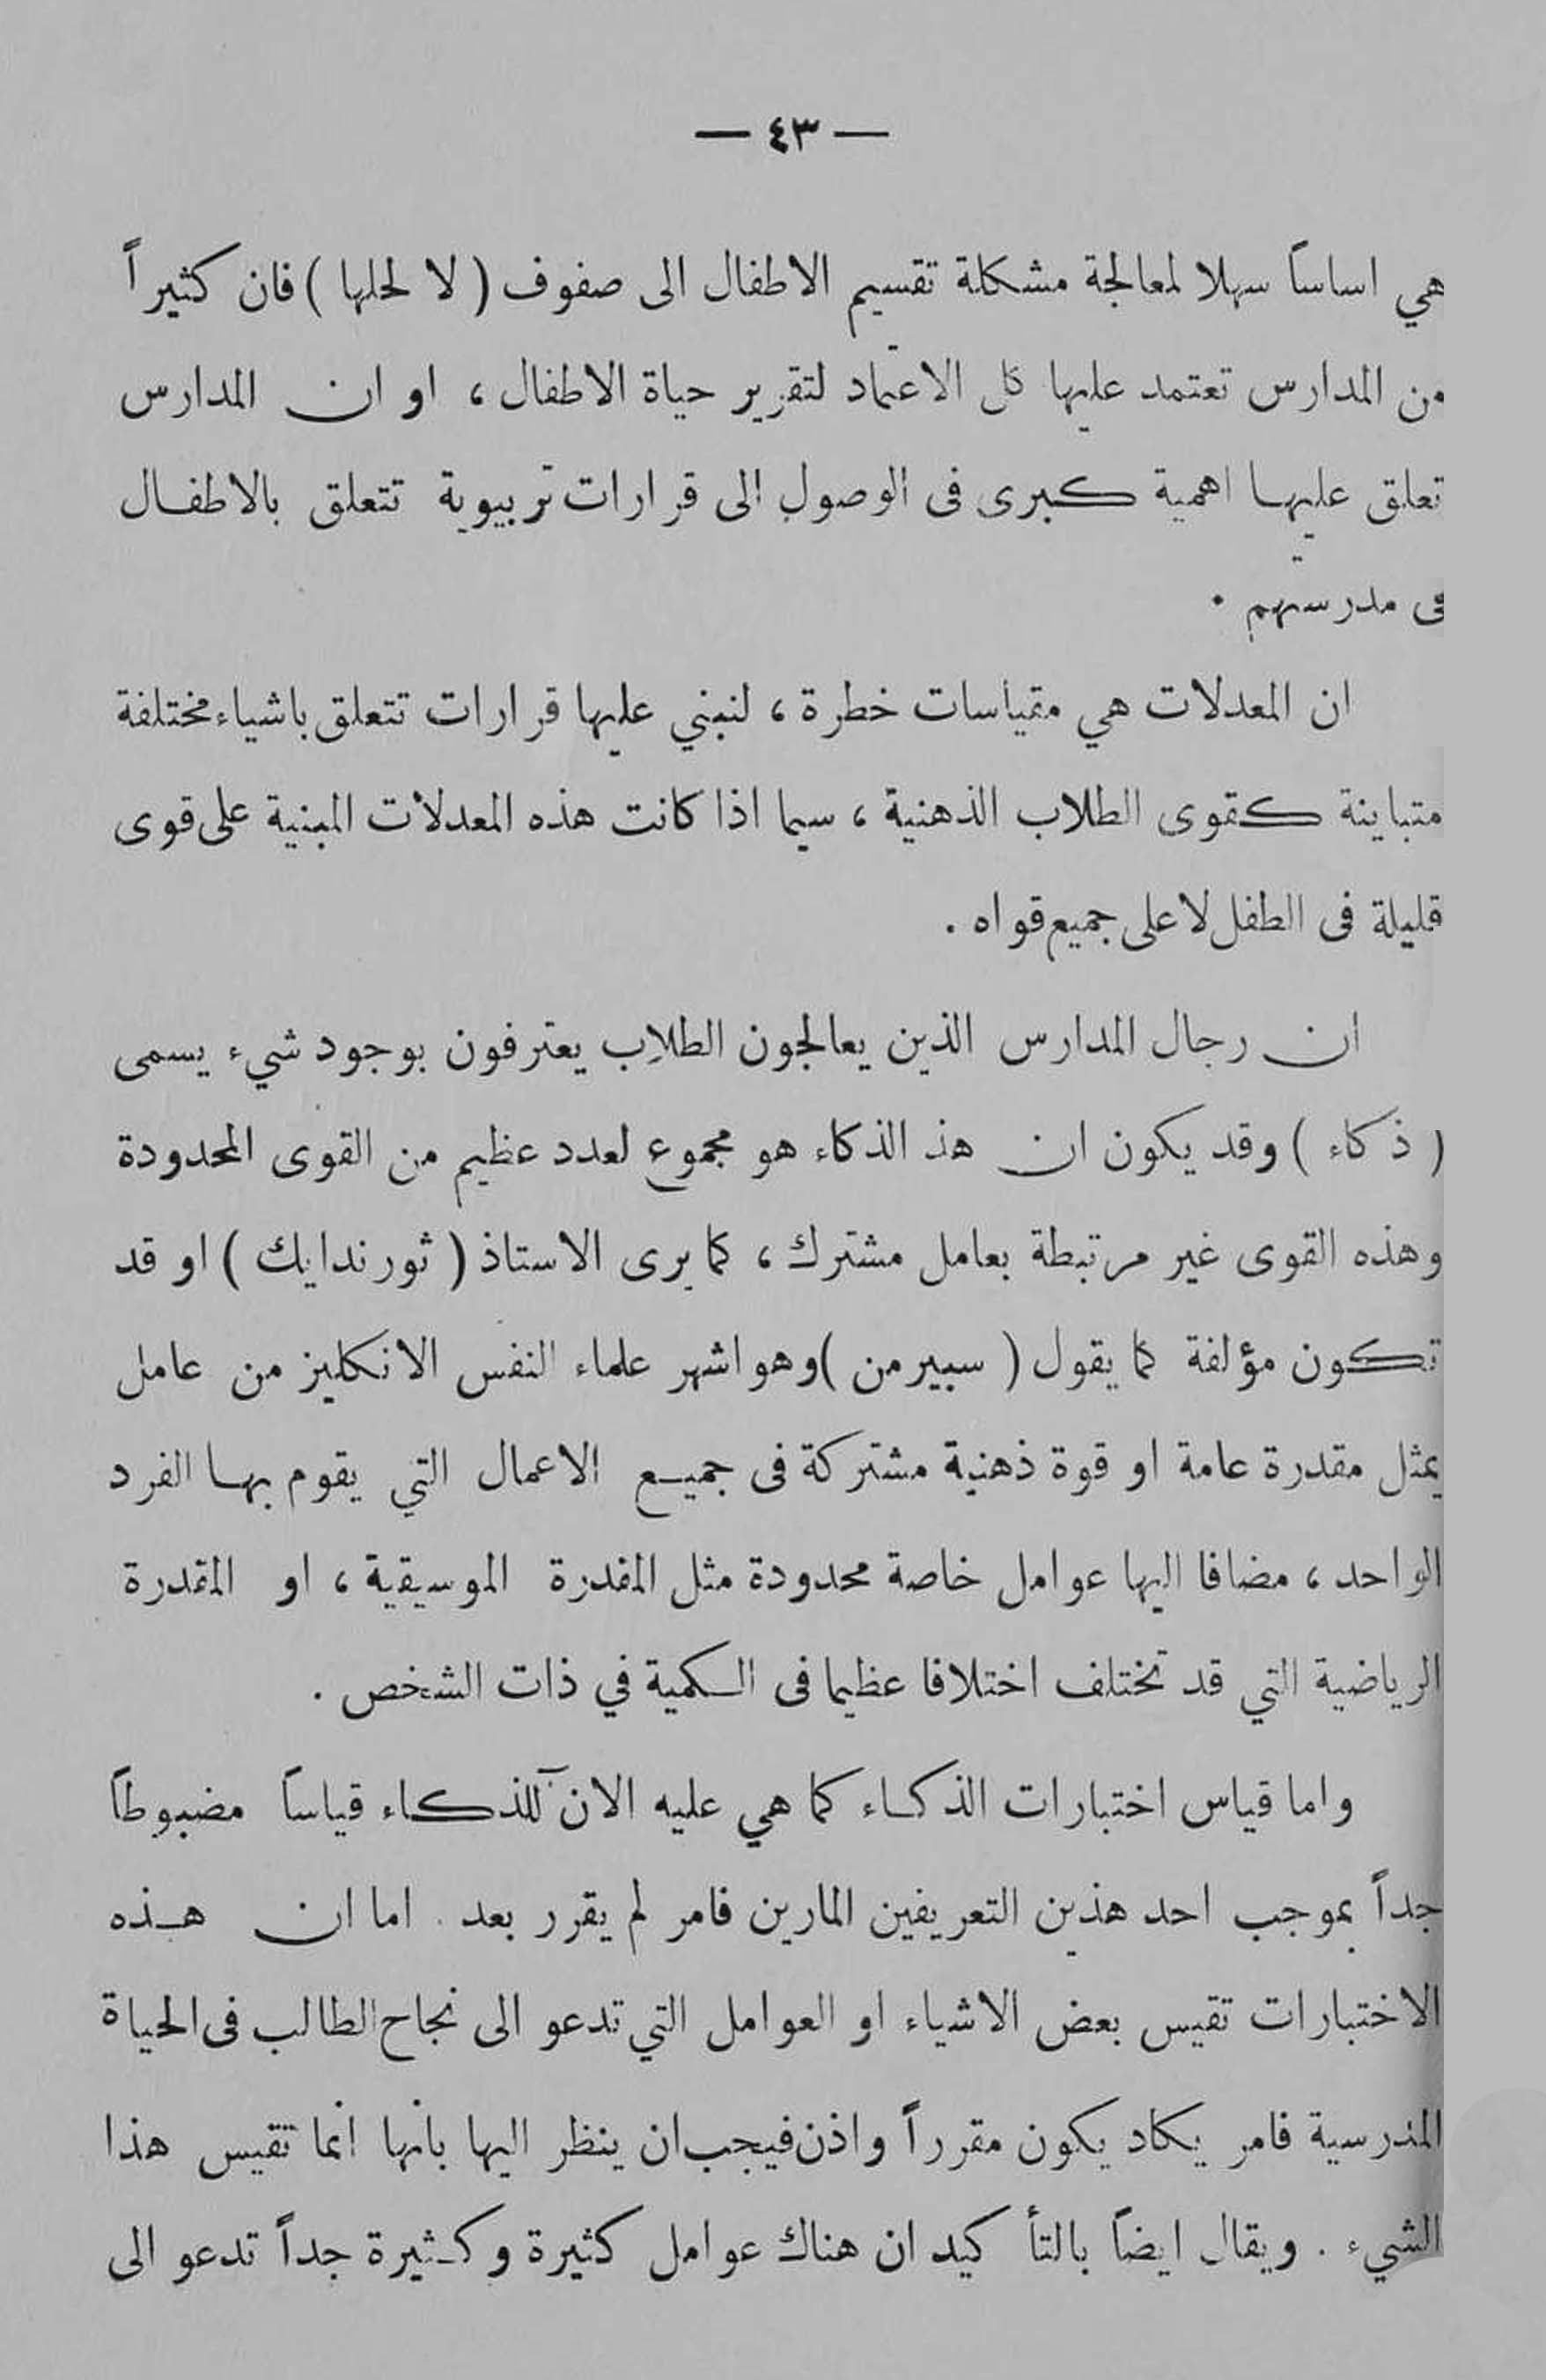 — ٤٣ —
هي اساساً سهلا لمعالجة مشكلة تقسيم الاطفال الى صفوف ( لا لحلها ) فان كثيراً
من المدارس تعتمد عليها كل الاعتماد لتقرير حياة الاطفال ، او ان المدارس
تعلق عليها اهمية كبرى فى الوصول الى قرارات تربيوية تتعلق بالاطفال
فى مدرستهم .
ان المعدلات هي مقياسات خطرة ، لنبني عليها قرارات تتعلق باشياء مختلفة
متباينة كقوى الطلاب الذهنية ، سيما اذا كانت هذه المعدلات المبنية على قوى
قليلة فى الطفل لا على جميع قواه .
ان رجال المدارس الذين يعالجون الطلاب يعترفون بوجود شيء يسمى
( ذكاء ) وقد يكون ان هذ الذكاء هو مجموع لعدد عظيم من القوى المحدودة
وهذه القوى غير مرتبطة بعامل مشترك ، كما يرى الاستاذ ( ثورندايك ) او قد
تكون مؤلفة كما يقول ( سبيرمن ) وهو اشهر علماء النفس الانكليز من عامل
يمثل مقدرة عامة او قوة ذهنية مشتركة فى جميع الاعمال التي يقوم بها الفرد
الواحد ، مضافا اليها عوامل خاصة محدودة مثل المقدرة الموسيقية ، او المقدرة
الرياضية التي قد تختلف اختلافا عظيما فى الكمية في ذات الشخص .
واما قياس اختبارات الذكاء كما هي عليه الان للذكاء قياساً مضبوطاً
جداً بموجب احد هذين التعريفين المارين فامر لم يقرر بعد . اما ان هذه
الاختبارات تقيس بعض الاشياء او العوامل التي تدعو الى نجاح الطالب فى الحياة
المدرسية فامر يكاد يكون مقرراً واذن فيجب ان ينظر اليها بانها انما تقيس هذا
الشيء . ويقال ايضاً بالتأ كيد ان هناك عوامل كثيرة وكثيرة جداً تدعو الى